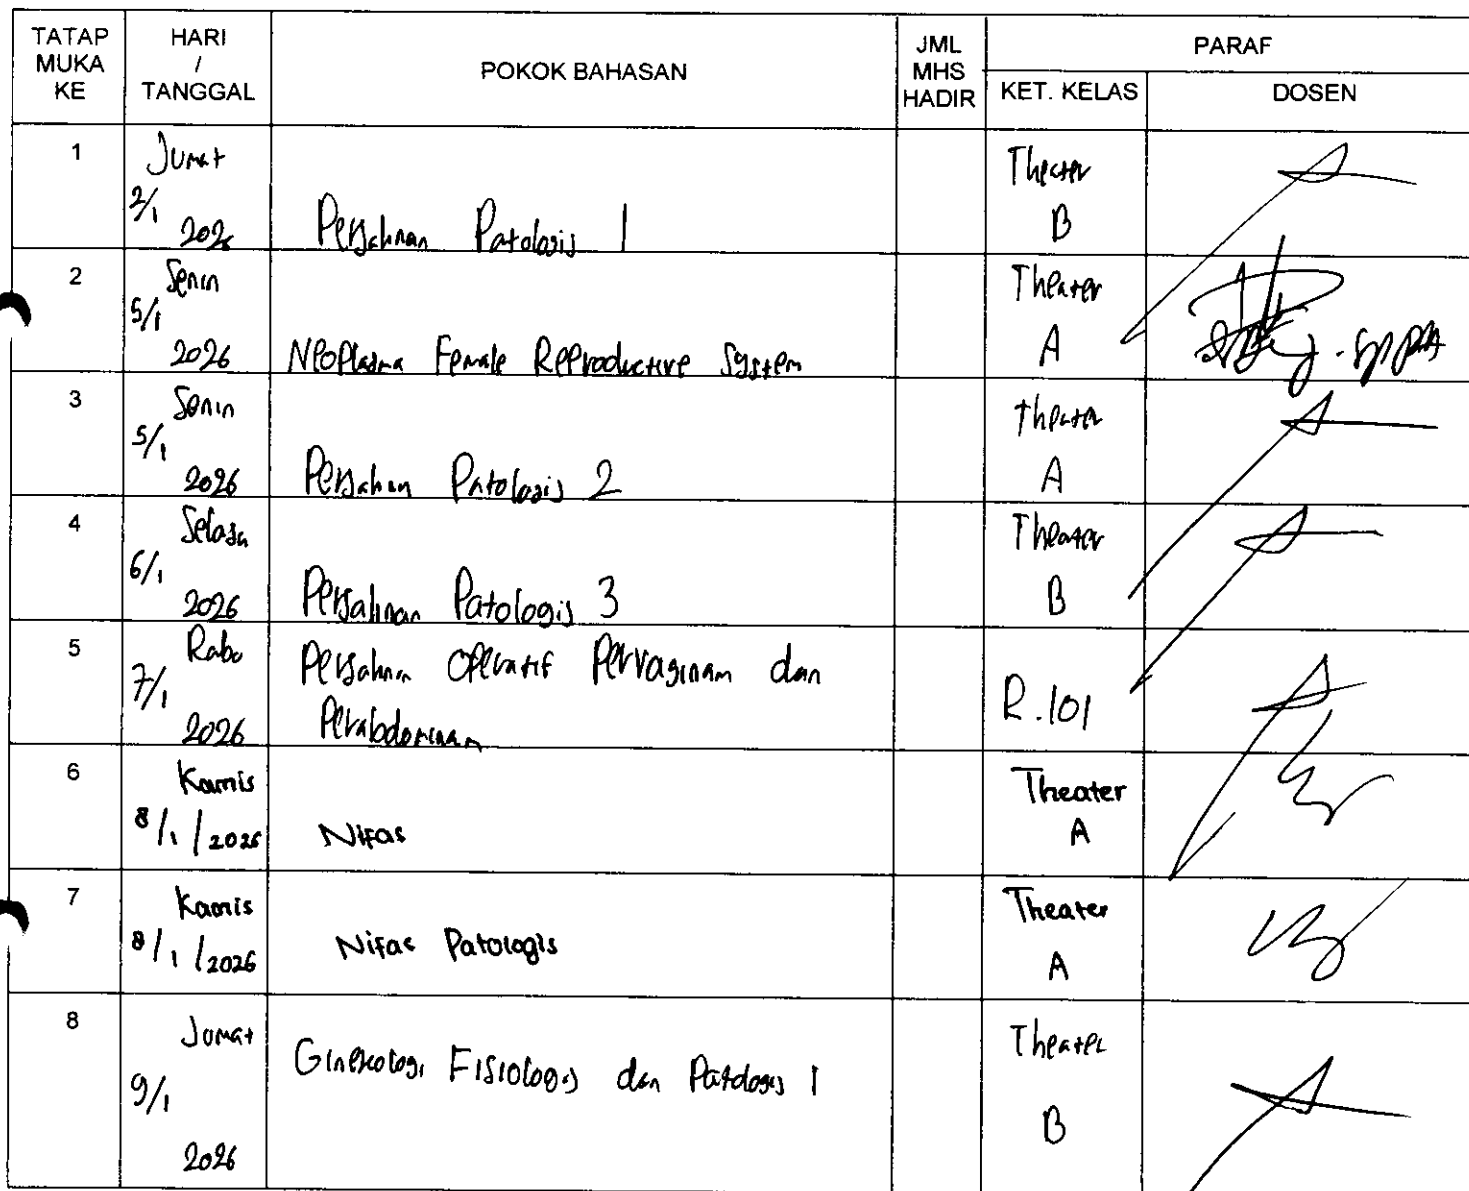 TATAP MUKA KE
HARI / TANGGAL
POKOK BAHASAN
JML MHS HADIR
PARAF
KET. KELAS
DOSEN
1
Jumat
2/1
2026
Persalinan Patologis 1
Theater
B
2
Senin
5/1
2026
Neoplasma Female Reproductive System
Theater
A
3
Senin
5/1
2026
Persalinan Patologis 2
Theater
A
4
Selasa
6/1
2026
Persalinan Patologis 3
Theater
B
5
Rabu
7/1
2026
Persalinan Operatif Pervaginam dan
Perabdominam
R.101
6
Kamis
8/1/2026
Nifas
Theater
A
7
Kamis
8/1/2026
Nifas Patologis
Theater
A
8
Jumat
9/1
2026
Ginekologi Fisiologis dan Patologis 1
Theater
B